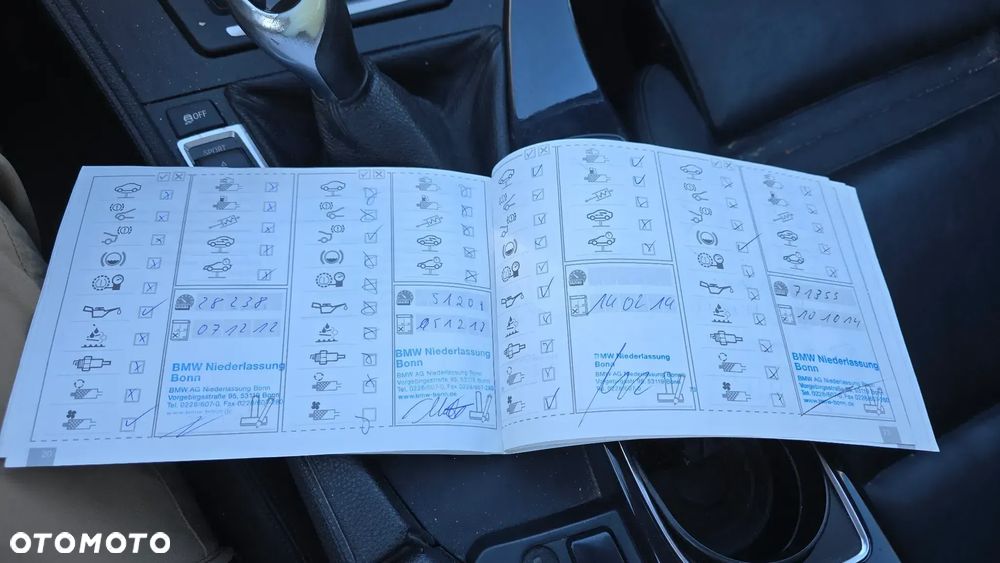 OFF
SPORT
28 238
07 12 12
BMW Niederlassung
Bonn
BMW AG Niederlassung Bonn
Vorgebirgsstraße 95, 53119 Bonn
51201
05 12 13
BMW Niederlassung
Bonn
BMW AG Niederlassung Bonn
Vorgebirgsstraße 95, 53119 Bonn
14 02 14
BMW Niederlassung
Bonn
BMW AG Niederlassung Bonn
71355
10 10 14
BMW Niederlassung
Bonn
BMW AG Niederlassung Bonn
www.bmw-bonn.de
20
OTOMOTO